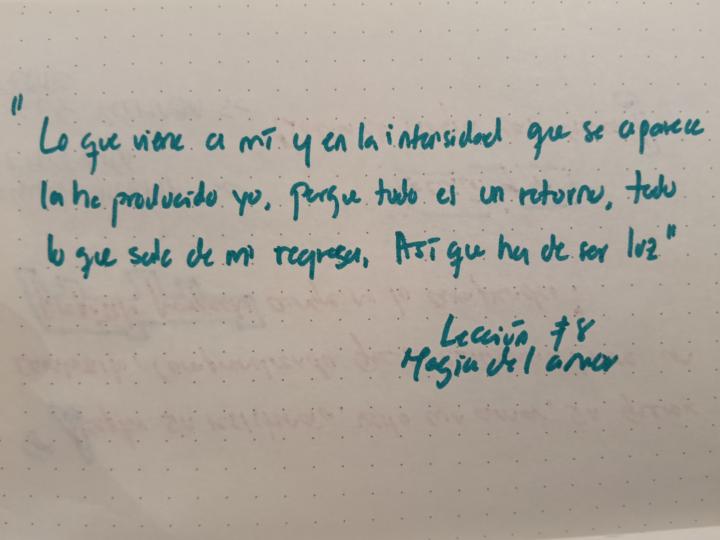 "Lo que viene a mí y en la intensidad que se aparece
la he producido yo, porque todo es un retorno, todo
lo que sale de mi regresa, Así que ha de ser luz"
Lección #8
Magia del amor